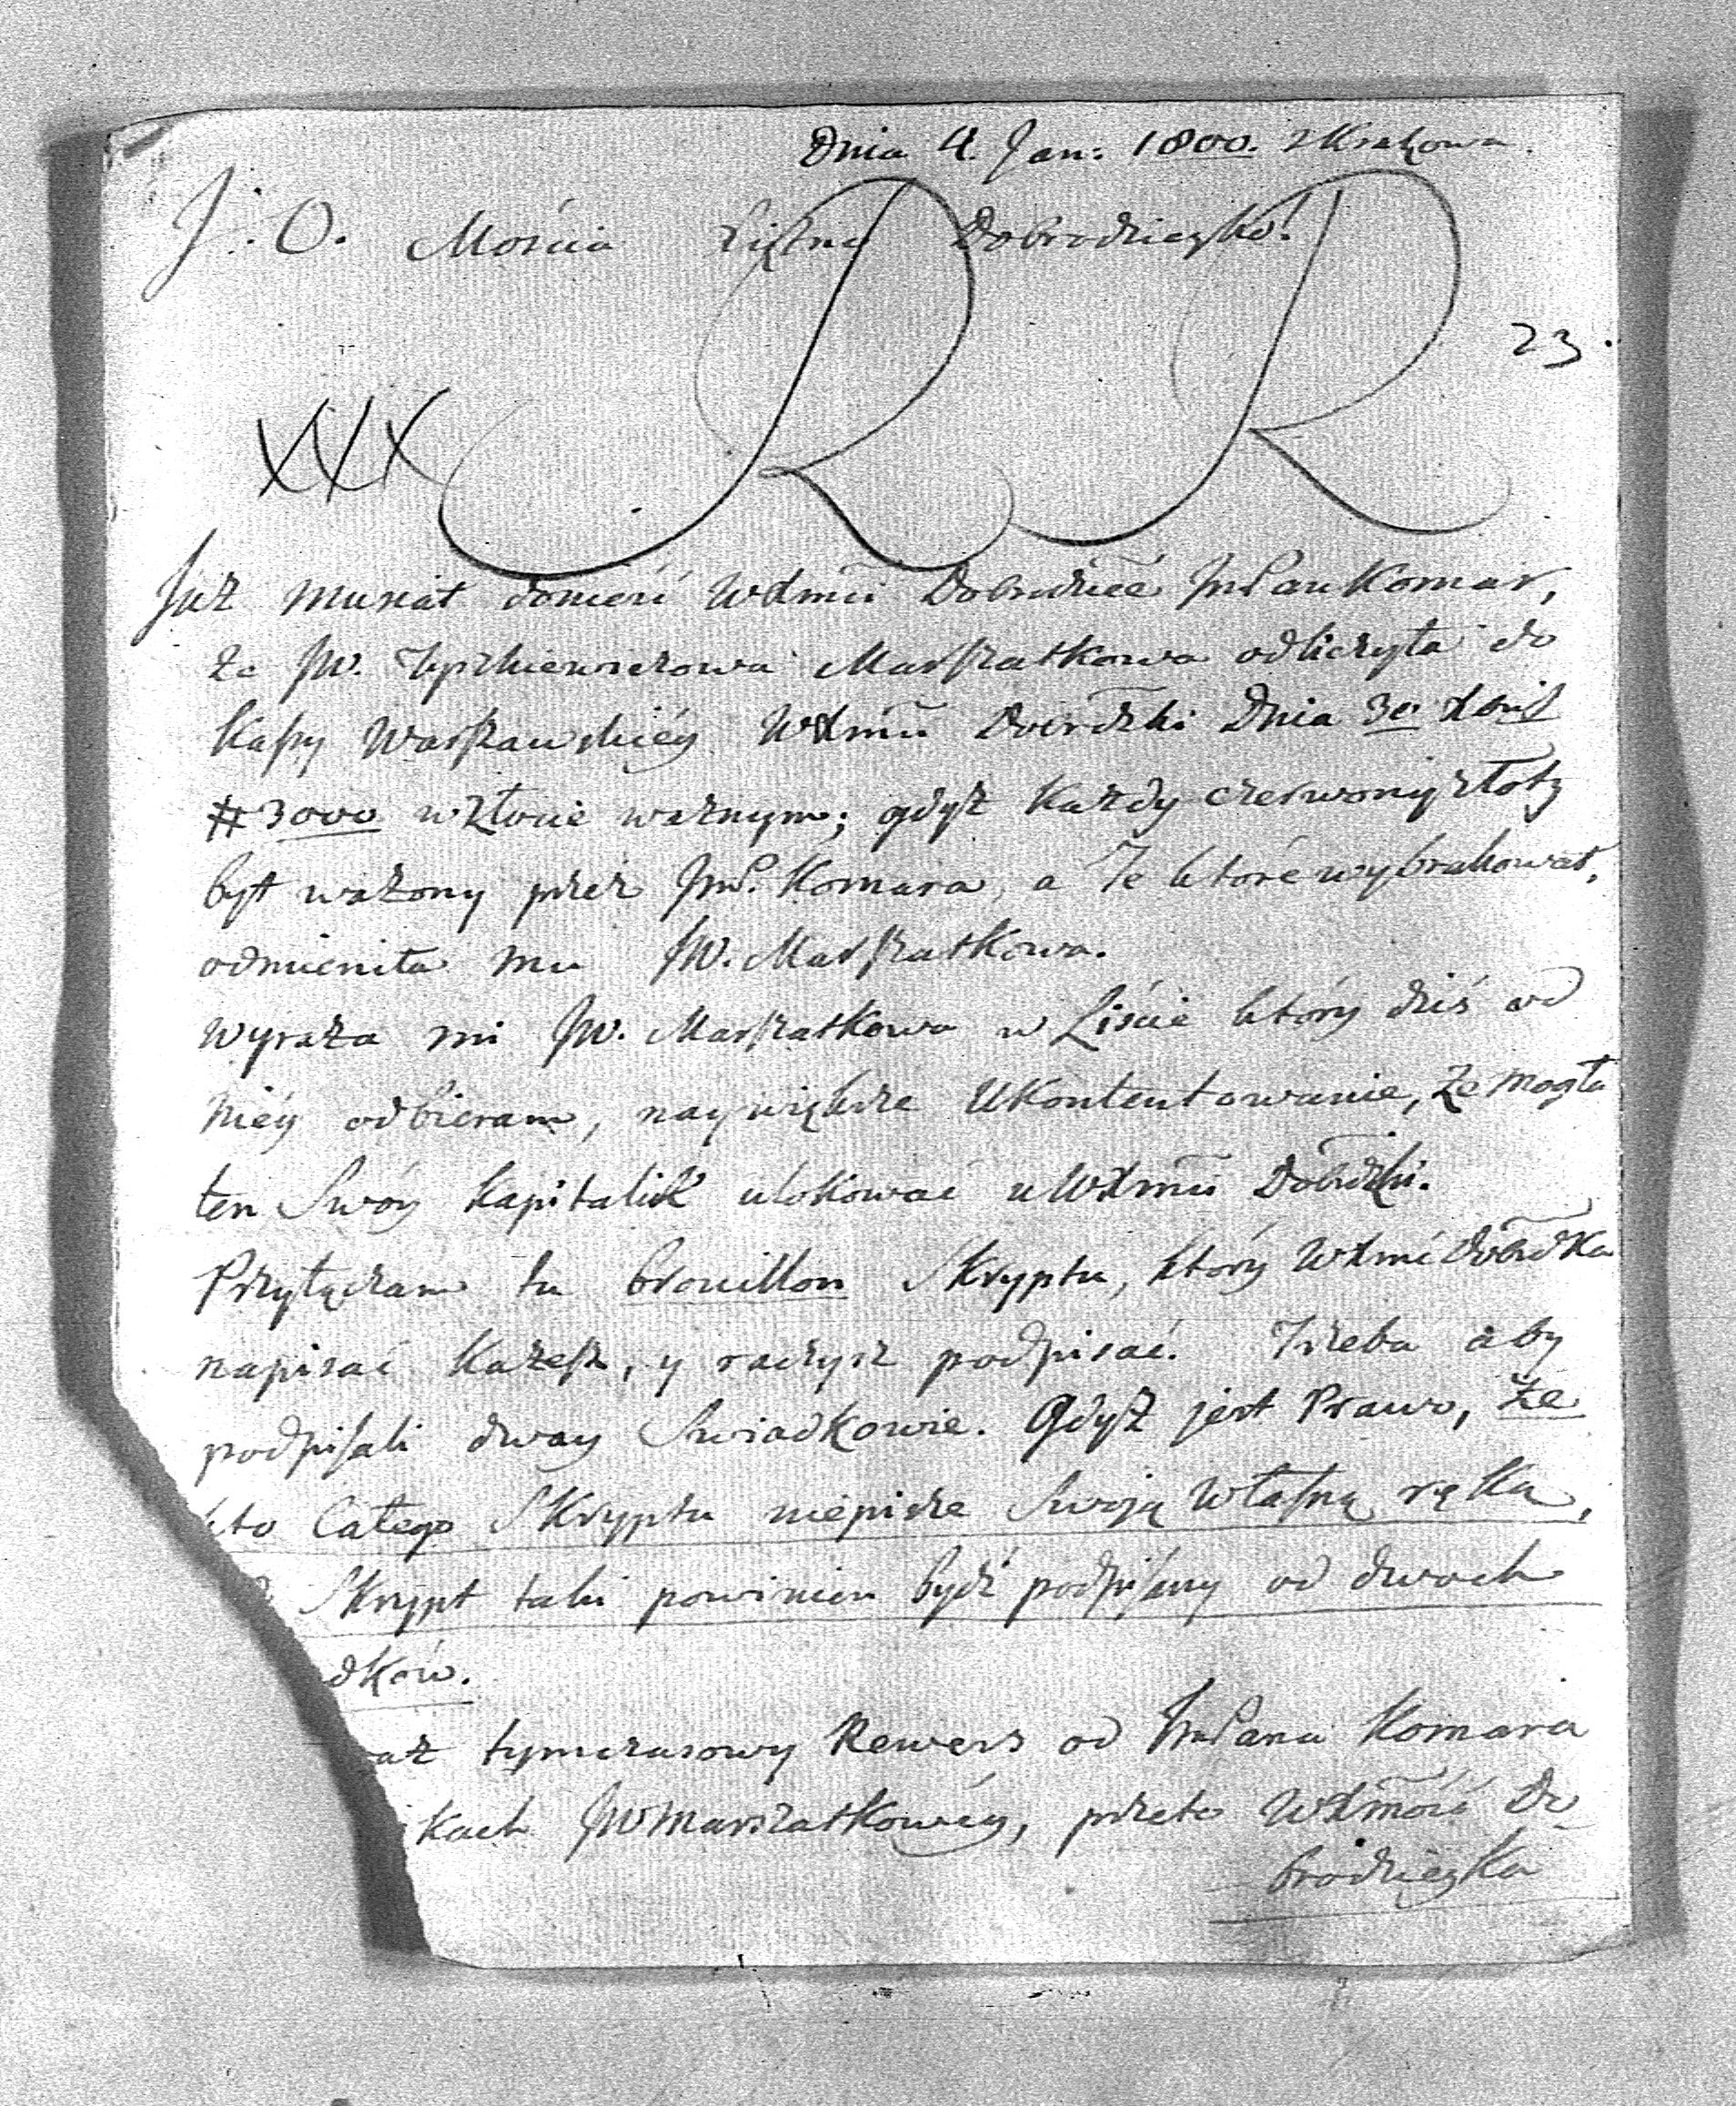 Dnia 4. Jan: 1800. z Krakowa.
J. O. Mościa Xiężno Dobrodzieyko!
R R
23.
XXX
Już musiał donieść WXmci Dobrodzice JmPan Komar,
że JW. Marszałkowa odliczyła do
Kassy Warszawskiéy WXmci Dobrdzki Dnia 30
#3000 w złocie ważnym; gdyż każdy czerwony złoty
był ważony przez JmP. Komara, a Te które wybrakował,
odmieniła mu JW. Marszałkowa.
Wyraża mi JW. Marszałkowa w Liście który dziś od
Niéy odbieram, naywiększe Ukontentowanie, że mogła
ten Swóy kapitalik ulokować u WXmci Dobrdzki.
Przyłączam tu brouillon Skryptu, który WXmć Dobrdka
napisać każesz, y raczysz podpisać. Trzeba aby
podpisali dway Swiadkowie. Gdyż jest Prawo, że
kto Całego Skryptu niepisze Swoją własną ręką,
Skrypt taki powinien bydź podpisany od dwoch
dków.
aż tymczasowy Rewers od JmPana Komara
kach JWMarszałkowéy, przeto WXmość Do
brodzieyka